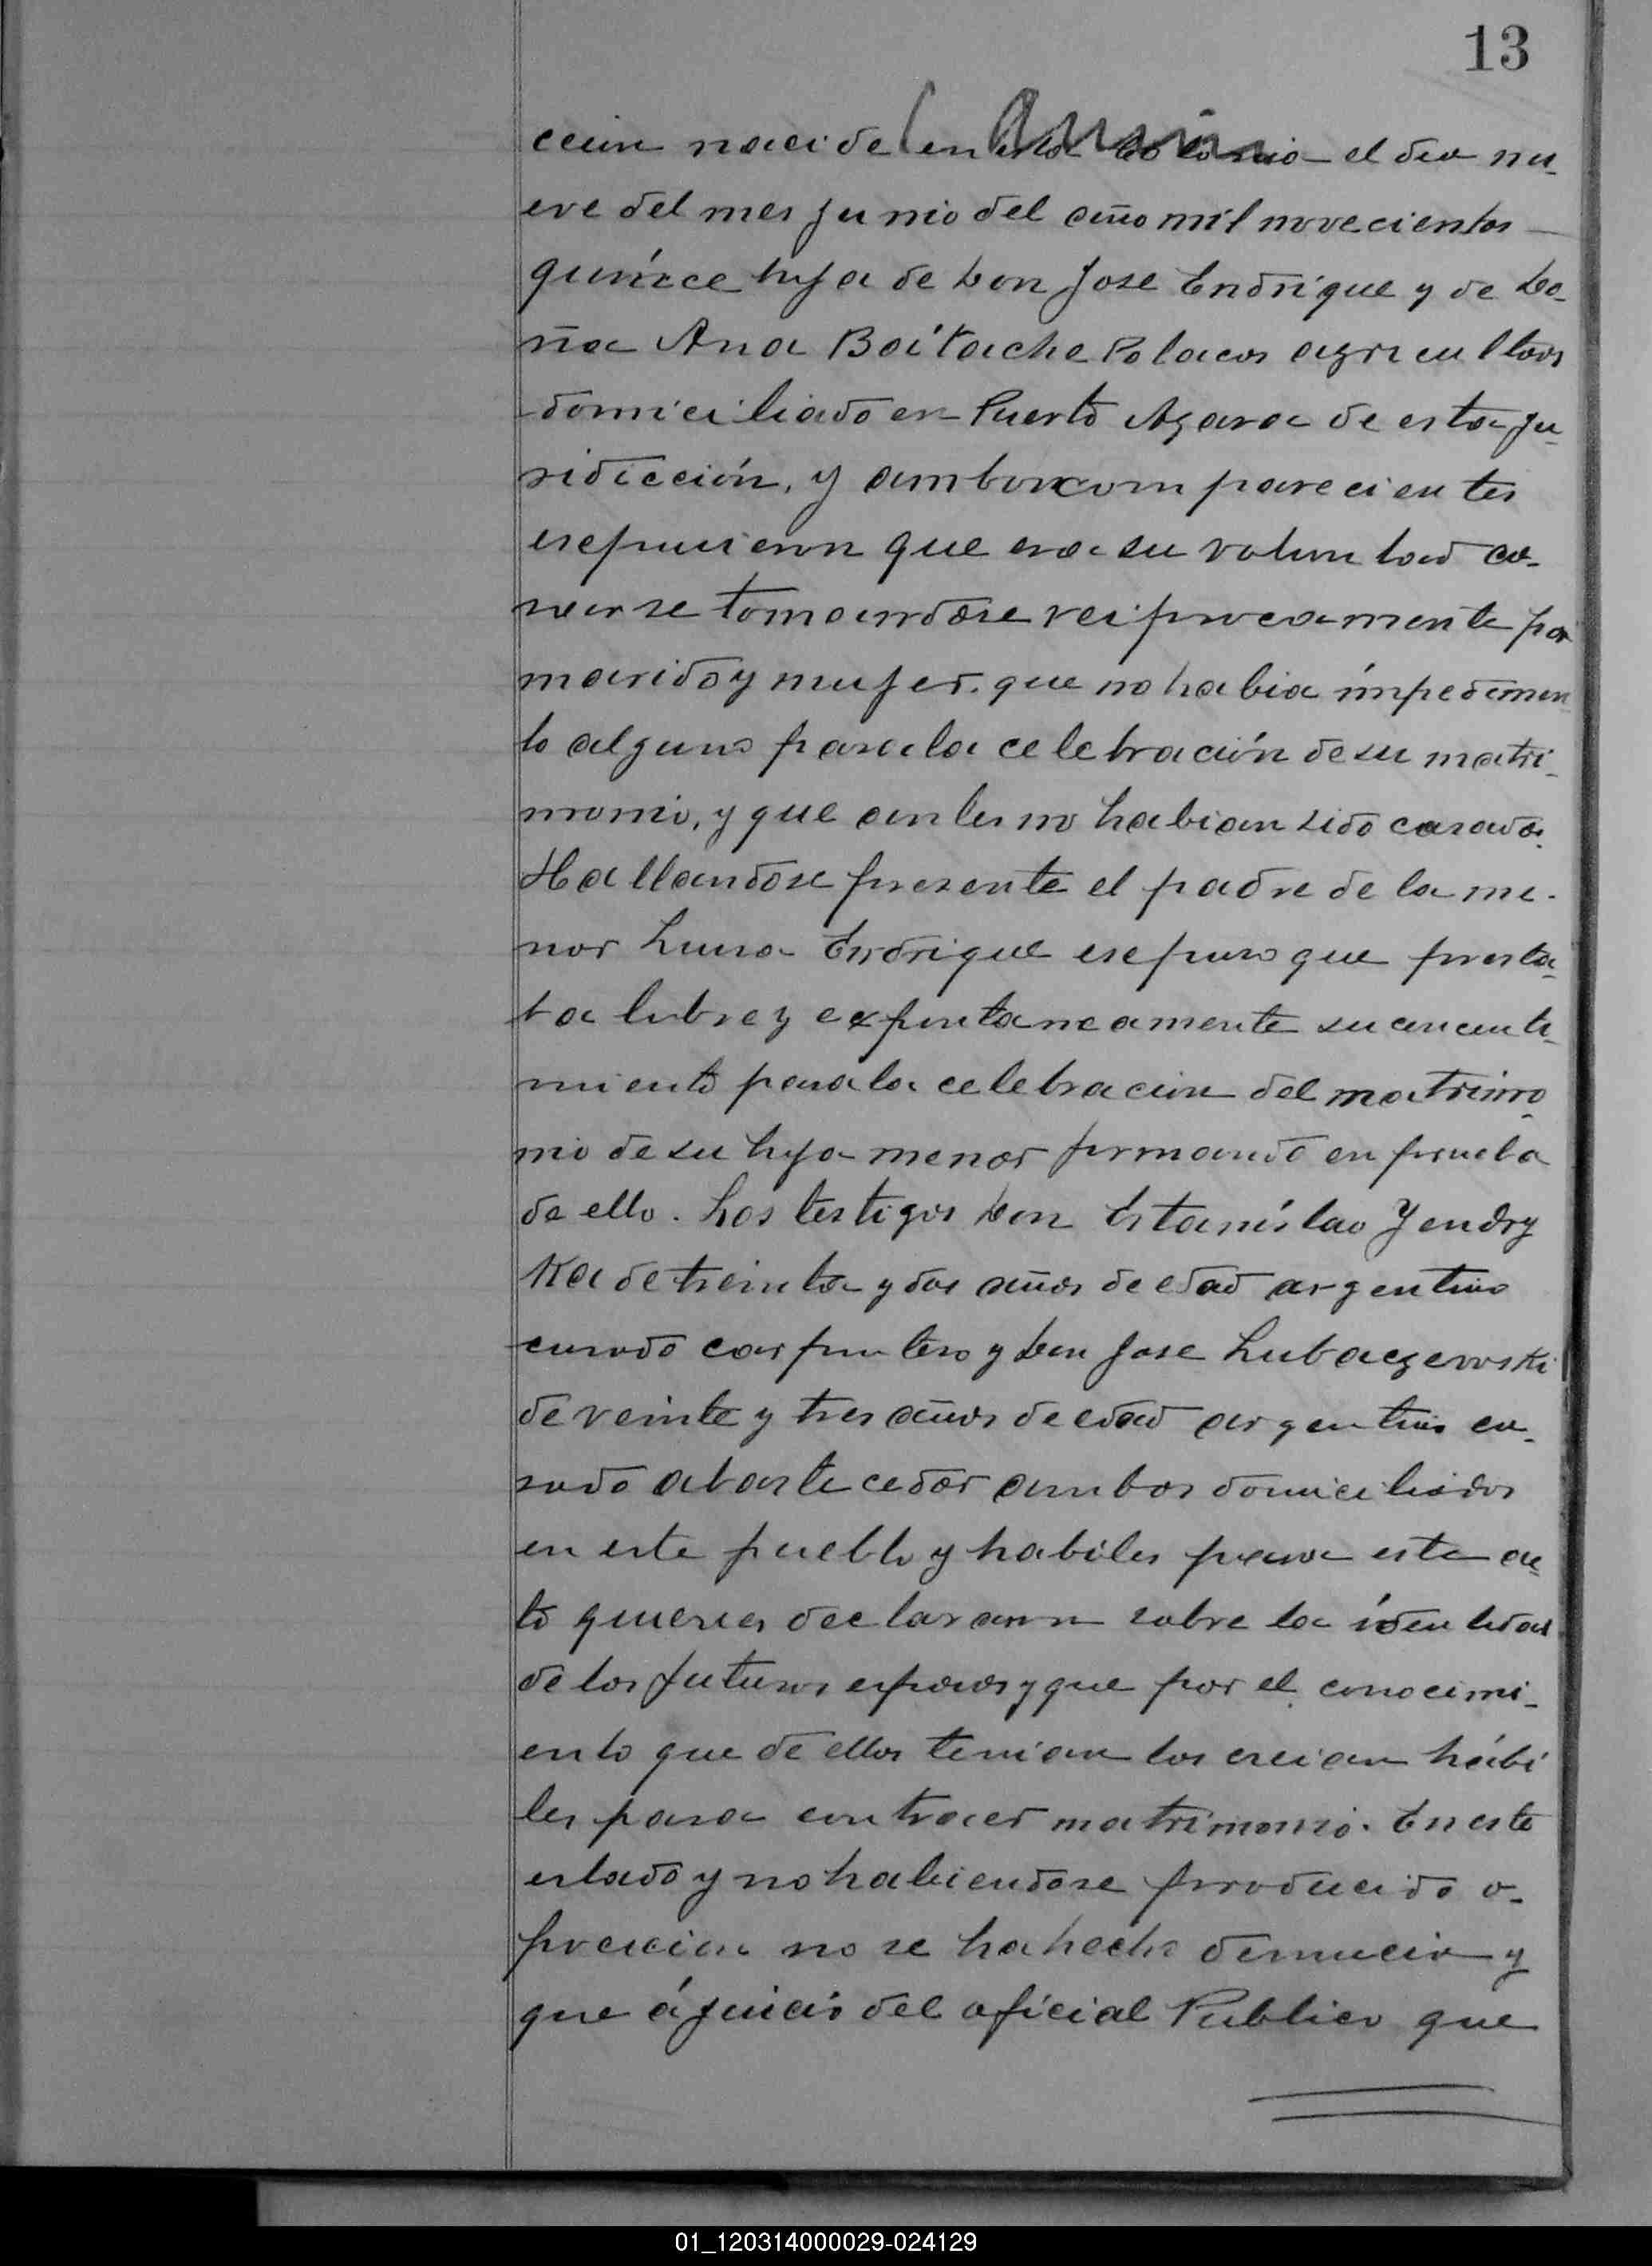 13
ccion nacida en esta Colonia el dia nu-
eve del mes junio del año mil novecientos
quince hija de Don Jose Endrigue y de Do-
ña Ana Boitache Polacos agricultores
domiciliado en Puerto Azara de esta ju-
ridicción, y ambos comparecientes
espusieron que era su voluntad ca-
sarse tomandose reiprocamente por
marido y mujer. que no habia impedimen
to alguno para la celebración de su matri-
monio, y que antes no habian sido casados.
Hallandose presente el padre de la me-
nor Luisa Endrigue espuso que presta-
ba libre y expontaneamente su concenti-
miento para la celebracion del matrimo-
nio de su hija menor firmando en prueba
de ello. Los testigos Don Estanislao Jendry
Ka de treinta y dos años de edad argentino
casado carpintero y Don Jose Lubaczewski
de veinte y tres años de edad argentino ca-
sado abastecedor ambos domiciliados
en este pueblo y habiles para este ac-
to quienes declararon sobre la identidad
de los futuros esposos y que por el conocimi-
ento que de ellos tenian los creian hábi
les para contraer matrimonio. En este
estado y no habiendose producido o-
posicion no se ha hecho denuncia y
que á juicio del oficial Publico que
01_120314000029-024129